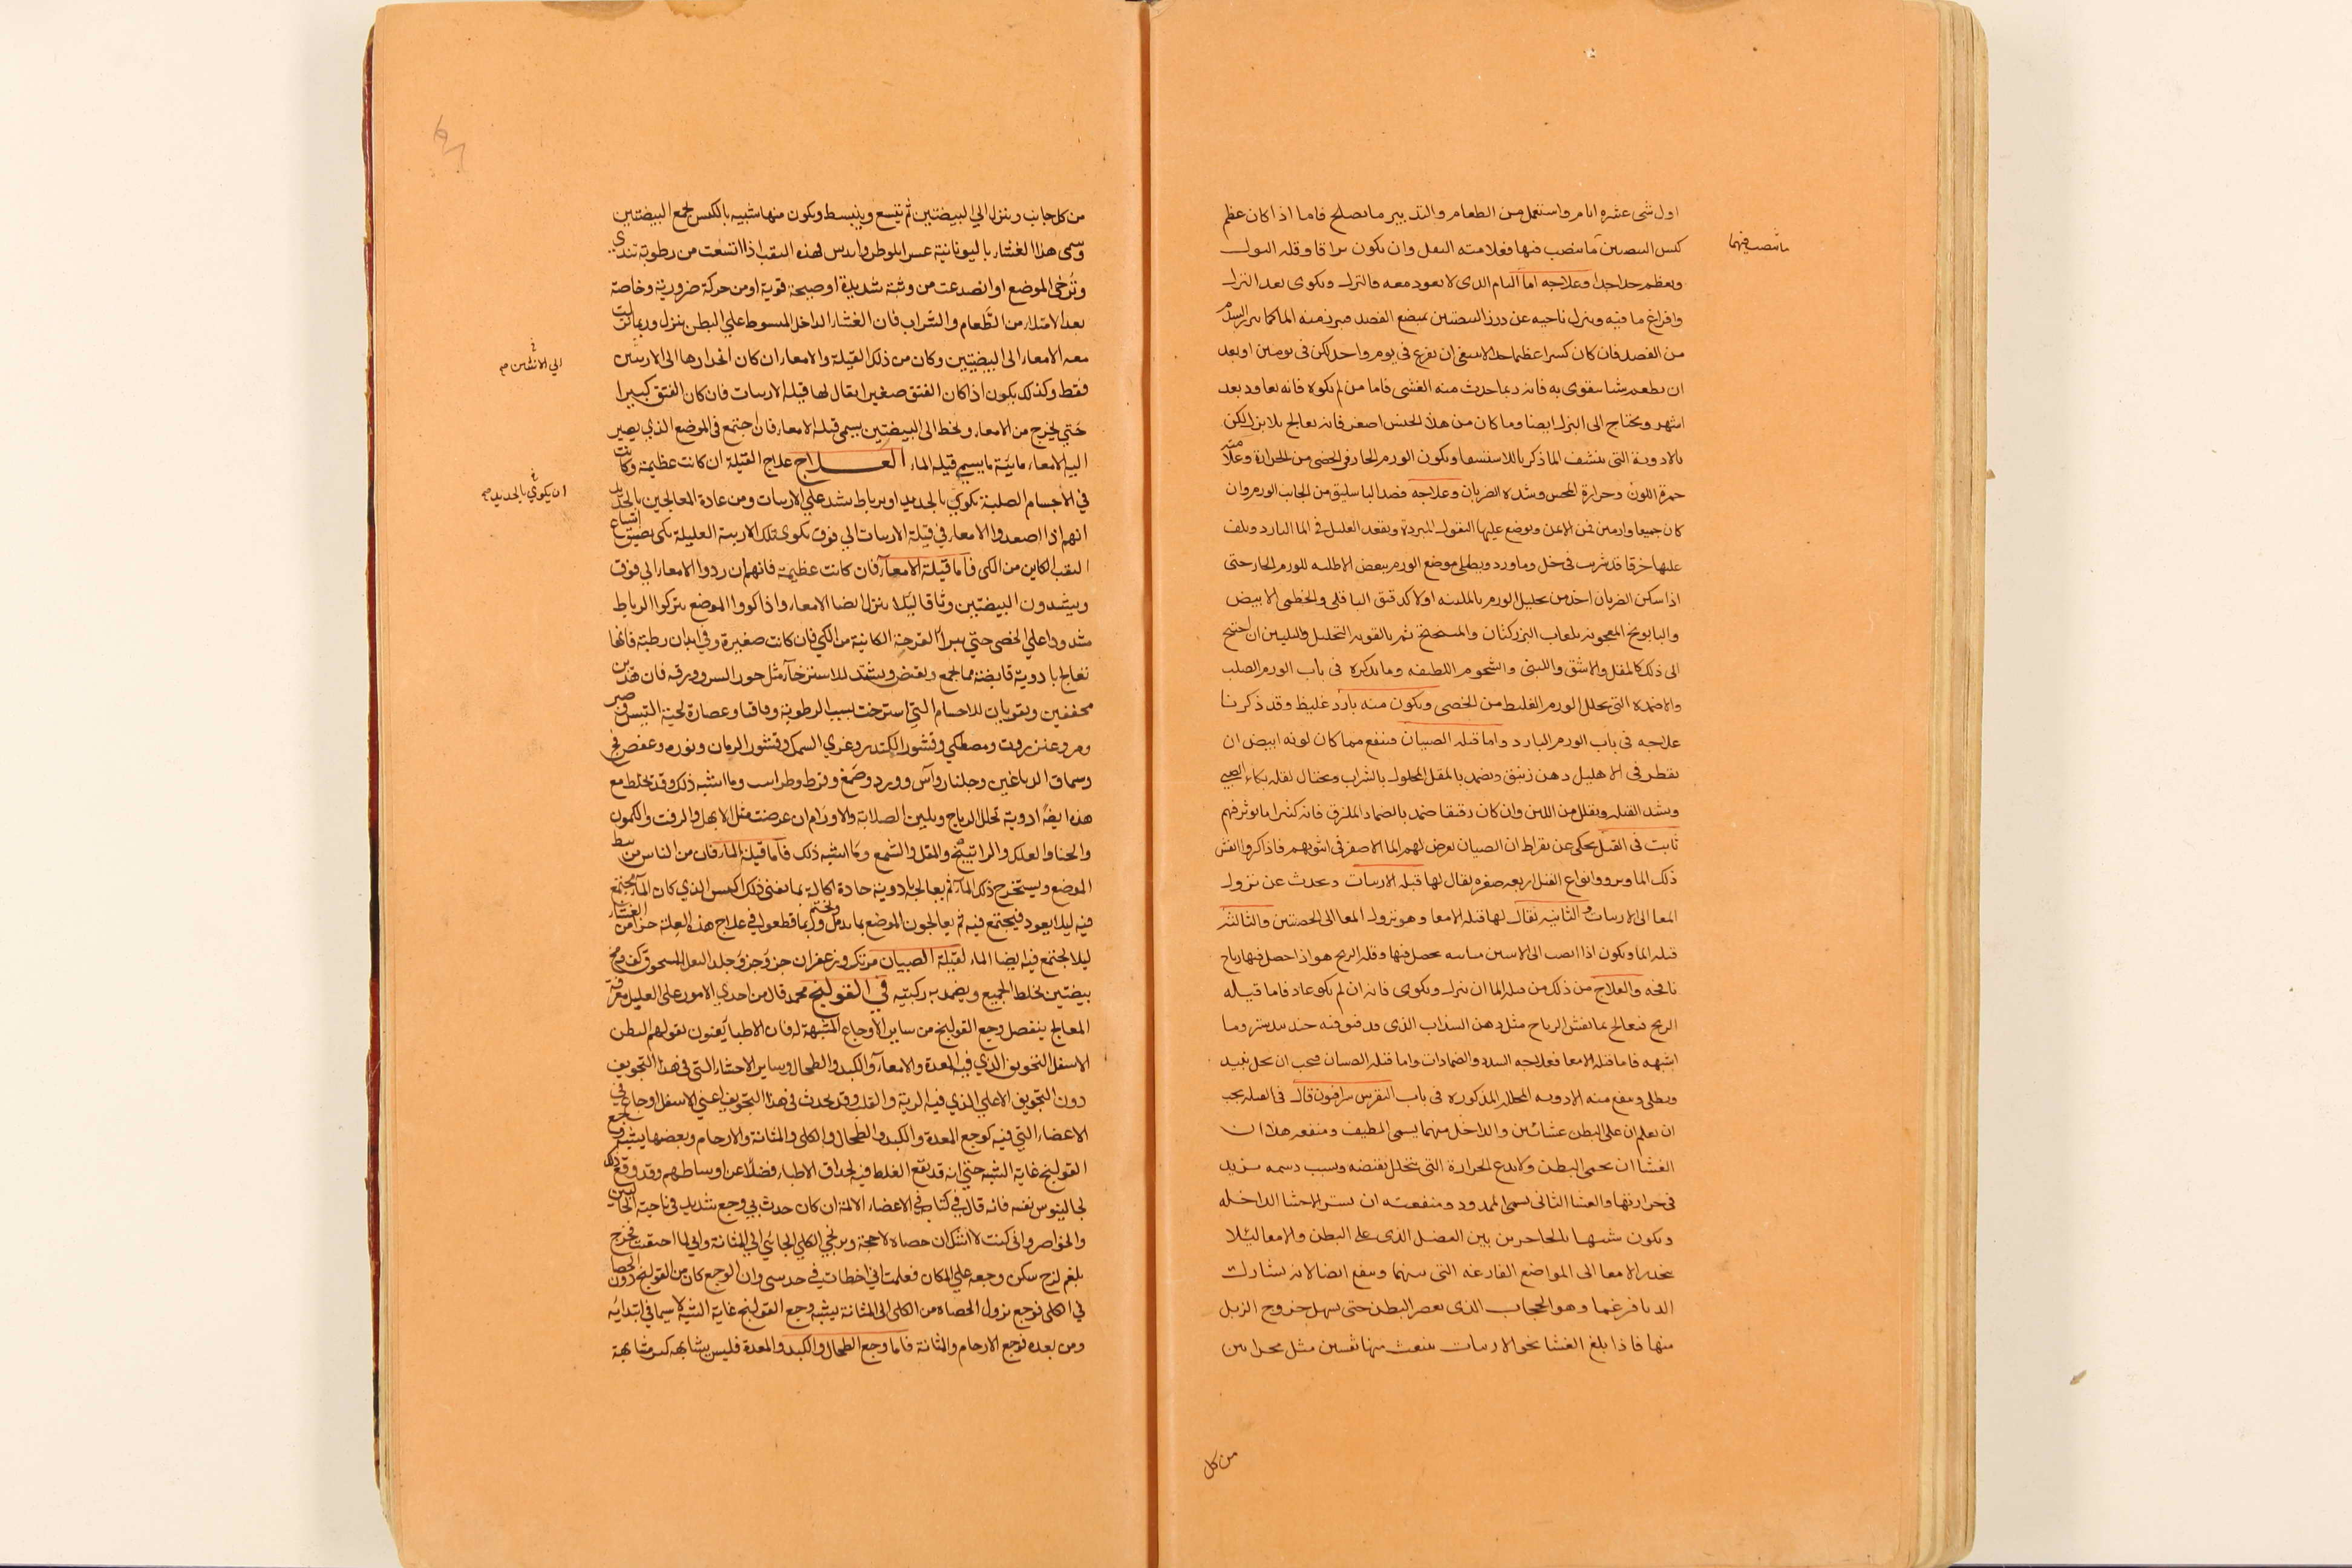 اول شى عشره ايام واستعمل من الطعام والتدبير ما يصلح فاما اذا كان عظم
كيس البيضتين مما ينصب فيها فعلامته الثقل وان يكون براقا وقله البول
ما ينصب فيهما
ويعظم جدا جدا وعلاجه اما التام الذى لا يعود معه فالبزل ويكوى بعد البزل
وافراغ ما فيه وينزل ناحيه عن درز البيضتين بمبضع الفصد فيبرز منه الماء كما يبرز الدم
من الفصد فان كان كبيرا عظيما جدا لا ينبغى ان يفرغ فى يوم واحد لكن فى يومين او بعد
ان يطعم شيا يتقوى به فانه ربما حدث منه الغشى فاما من لم يكوه فانه يعاود بعد
اشهر ويحتاج الى البزل ايضا وما كان من هذا الجنس اصغر فانه يعالج بلا بزل لكن
بالادوية التى ينشف الماء ذكر بالاستسقا ويكون الورم الحار فى الخصى من الحرارة وعلامته
حمرة اللون وحرارة المجس وشدة الضربان وعلاجه فصد الباسليق من الجانب الورم وان
كان جميعا وارمين فمن الايمن ويوضع عليها البقول المبردة ويقعد العليل فى الماء البارد ويلف
عليها خرقا قد شربت فى خل وماورد ويطلى موضع الورم ببعض الاطليه للورم الحار حتى
اذا سكن الضربان اخذ من تحليل الورم بالملينه اولا كدقيق الباقلى والخطمى الابيض
والبابونج المعجونه بلعاب البزركتان والميبختج ثم بالقويه التحليل والتليين ان احتيج
الى ذلك كالمقل والاشق واللبنى والشحوم اللطيفه وما نذكره فى باب الورم الصلب
والاضمده التى تحلل الورم الغليظ من الخصى ويكون منه بارد غليظ وقد ذكرنا
علاجه فى باب الورم البارد واما قيله الصبيان فينفع مما كان لونه ابيض ان
يقطر فى الاهليل دهن زنبق ويضمد بالمقل المحلول بالشراب ويحتال لقله بكاء الصبى
ويشد القيله ويقلل من اللبن وان كان دقيقا ضمد بالضماد الملزق فانه كثيرا ما يوثر فيهم
ثابت فى القيل يحكى عن بقراط ان الصبيان يعرض لهم الماء الاصفر فى انثييهم فاذا كبروا انفش
ذلك الماء وبروا وانواع القيل اربعه صفره يقال لها قيله الاربيات وتحدث عن نزول
المعا الى الاربيات والثانيه يقال لها قيله الامعا وهو نزول المعا الى الخصيتين والثالثه
قيله الماء ويكون اذا انصب الى الانثيين مائيه يحصل فيها وقيله الريح هو اذا حصل فيها رياح
نافخه والعلاج من ذلك من قيله الماء ان يبزل ويكوى فانه ان لم يكو عاد فاما قيله
الريح فيعالج بما يفش الرياح مثل دهن السذاب الذى قد فتق فيه جندبيدستر وما
اشبهه فاما قيله الامعا فعلاجه الشد والضمادات واما قيله الصبيان فيجب ان يحل
ويطلى وينفع منه الادويه المحلله المذكوره فى باب النقرس سرافيون قال فى القيله يجب
ان يعلم ان على البطن غشائين والداخل منهما يسمى المطيف ومنفعه هذا ان
الغشا ان يحمى البطن ولا يدع الحرارة التى تتحلل بقبضه وبسبب دسمه يزيد
فى حرارتها والغشا الثانى يسمى الممدود ومنفعته ان يستر الاحشا الداخله
ويكون شبيها بالحاجز بين العضل الذى على البطن والامعا لئلا
ينحدر الامعا الى المواضع الفارغه التى بينهما وينفع ايضا لانه يشارك
الديافرغما وهو الحجاب الذى يعصر البطن حتى يسهل خروج الزبل
منها فاذا بلغ الغشا نحو الاربيات ينبعث منها ثقبين مثل مجرايين
من كل
من كل جانب وينزل الى البيضتين ثم يتسع وينبسط ويكون منها شبيه بالكيس لجمع البيضتين
وسمى هذا الغشاء باليونانية فهذه الثقب اذا اتسعت من رطوبة تندى
وتُرخى الموضع او انصدعت من وثبة شديدة او صيحة قوية او من حركة ضرورية وخاصة
بعد الامتلاء من الطَّعام والشراب فان الغشاء الداخل المبسوط على البطن ينزل وربما نزلت
معه الامعاء الى البيضتين وكان من ذلك القيلة والامعاء ان كان انحدارها الى الاربيتين
الى الانثيين صح
فقط وكذلك يكون اذا كان الفتق صغيرا يقال لها قيله الاربيات فان كان الفتق كبيرا
حتى يخرج من الامعاء وينحط الى البيضتين يسمى قيله الامعاء فان اجتمع فى الموضع الذى يصير
اليه الامعاء مايّة ما يسمى قيله الماء العلاج علاج القيلة ان كانت عظيمة وكانت
فى الاجسام الصلبة تكوى بالحديد او برباط يشد على الاربيات ومن عادة المعالجين بالحديد
ان يكوى بالحديد صح
انهم اذا اصعدوا الامعاء فى قيلة الاربيات الى فوق يكوى تلك الاربية العليلة لكى يضيق اتساع
الثقب الكاين من الكى فاما قيلة الامعاء فان كانت عظيمة فانهم ان ردوا الامعاء الى فوق
ويشدون البيضتين وثاقا ليلا ينزل ايضا الامعاء واذا كووا الموضع يتركوا الرباط
مشدودا على الخصى حتى يبرأ القرحة الكائنة من الكى فان كانت صغيرة وفى ابدان رطبة فانها
تعالج بادوية قابضة مما يجمع ويقبض ويشد للاسترخاء مثل جوز السرو وورقه فان هذين
مجففين ويقويان للاجسام التى استرخت بسبب الرطوبة وقاقيا وعصارة لحية التيس وصبر
ومر وعنزروت ومصطكى وقشور الكندر وغرى السمك وقشور الرمان ونوره وعفص فج
وسماق الدباغين وجلنار وآس وورد وصمغ وقرط وطراثيث وما اشبه ذلك وقد يخلط مع
هذه ايضًا ادوية تحلل الرياح ويلين الصلابة والاورَام ان عرضت مثل الابهل والزفت والكمون
والحنا والعلك والراتينج والمقل والشمع وما اشبه ذلك فاما قيلة الماء فان من الناس من يبط
الموضع ويستخرج ذلك الماء ثم يعالج بادوية حادة اكالة بما يفنى ذلك الكيس الذى كان الماء يجتمع
فيه ليلا يعود فيجتمع فيه ثم يعالجون الموضع بما يدمل ويختم وربما قطعوا فى علاج هذه العلة جزا من الغشاء
ليلا يجتمع فيه ايضا الماء لقيلة الصبيان مرتك وزعفران جزؤ جزؤ وجلد البغل المسحوق كف ومخ
بيضتين يخلط الجميع ويضمد به ركبتيه فى القولنج محمد قال من احدى الامور على العليل معرفة
المعالج ينفصل وجع القولنج من ساير الأوجاع المشبهة له فان الاطبا يعنون بقولهم البطن
الاسفل التجويف الذى فيه المعدة والامعاء والكبد والطحال وساير الاحشاء التى فى هذا التجويف
دون التجويف الاعلى الذى فيه الرية والقلب وقد يحدث فى هذا التجويف اعنى الاسفل اوجاع فى
الاعضاء التى فيه كوجع المعدة والكبد والطحال والكلى والمثانة والارحام وبعضها يشبه وجع
القولنج غاية الشبه حتى انه قد يقع الغلط فيه لحذاق الاطباء فضلًا عن اوساطهم وقد وقع ذلك
لجالينوس نفسه فانه قال فى كتابه فى الاعضاء الالمة ان كان حدث بى وجع شديد فى ناحية الحالبين
والخواصر وانى كنت لا اشك ان حصاة لاحجة فى بربخى الكلى الجائى الى المثانة وانى لما احتقنت فخرج
بلغم لزج سكن وجعه على المكان فعلمت انى اخطات فى حدسى وان الوجع كان من القولنج دون الحصا
فى الكلى فوجع نزول الحصاة من الكلى الى المثانة يشبه وجع القولنج غاية الشبه لا سيما فى ابتدائه
ومن بعده فوجع الارحام والمثانة فاما وجع الطحال والكبد والمعدة فليس يشابهه كبير مشابهة